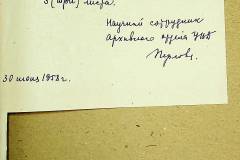 3 (три) листа.
Научный сотрудник
архивного отдела УМВД
Перлов.
30 июня 1958 г.